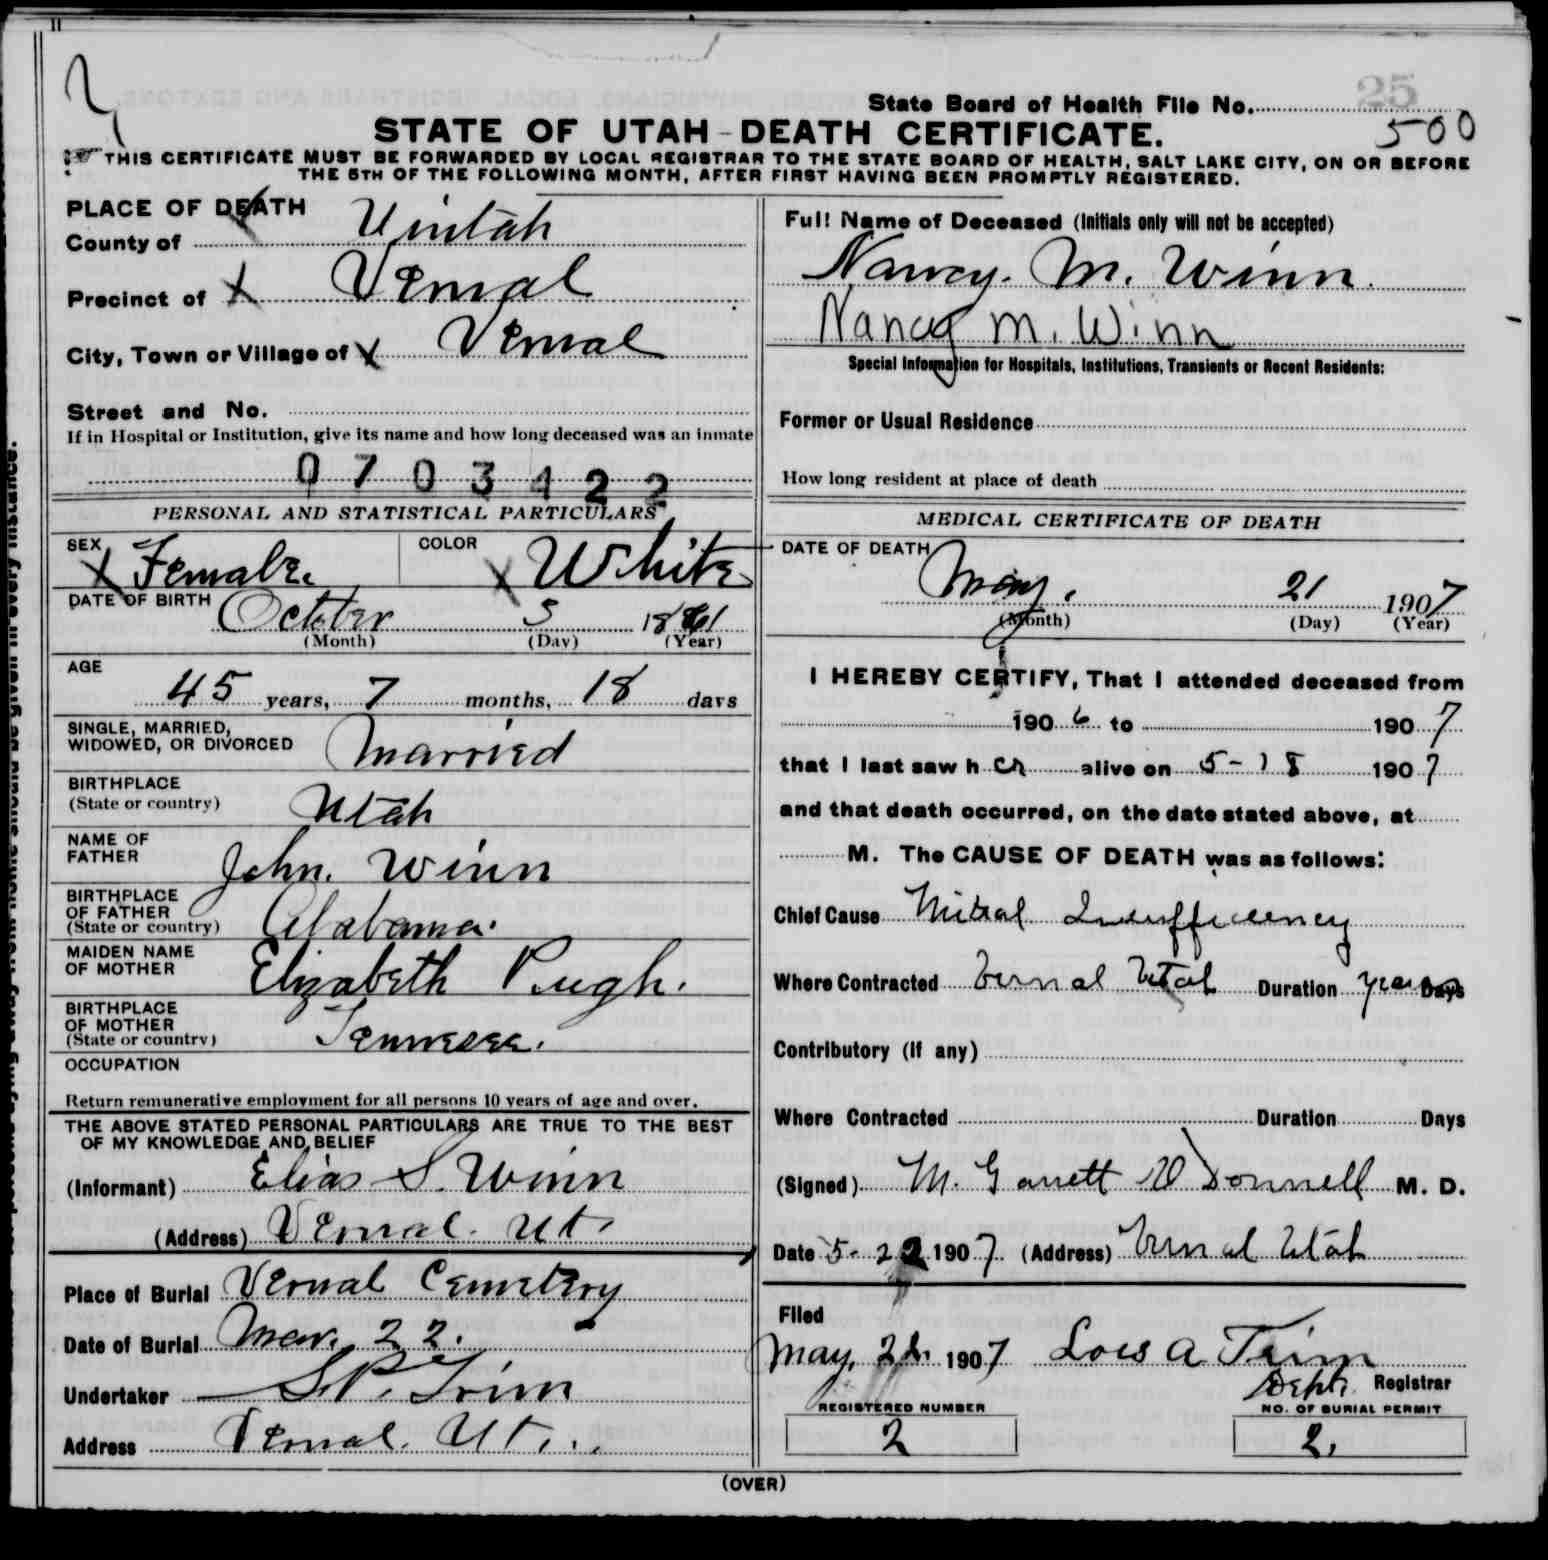 25
State Board of Health File No. 500
STATE OF UTAH - DEATH CERTIFICATE.
THIS CERTIFICATE MUST BE FORWARDED BY LOCAL REGISTRAR TO THE STATE BOARD OF HEALTH, SALT LAKE CITY, ON OR BEFORE
THE 5TH OF THE FOLLOWING MONTH, AFTER FIRST HAVING BEEN PROMPTLY REGISTERED.
PLACE OF DEATH
County of Uintah
Precinct of X Vernal
City, Town or Village of X Vernal
Street and No.
If in Hospital or Institution, give its name and how long deceased was an inmate
0703422
PERSONAL AND STATISTICAL PARTICULARS
SEX X Female. COLOR X White
DATE OF BIRTH October 5 1861
(Month) (Day) (Year)
AGE
45 years, 7 months, 18 days
SINGLE, MARRIED,
WIDOWED, OR DIVORCED Married
BIRTHPLACE
(State or country) Utah
NAME OF
FATHER John. Winn
BIRTHPLACE
OF FATHER
(State or country) Alabama.
MAIDEN NAME
OF MOTHER Elizabeth Pugh.
BIRTHPLACE
OF MOTHER
(State or country) Tennessee.
OCCUPATION
Return remunerative employment for all persons 10 years of age and over.
THE ABOVE STATED PERSONAL PARTICULARS ARE TRUE TO THE BEST
OF MY KNOWLEDGE AND BELIEF
(Informant) Elias S. Winn
(Address) Vernal. Ut.
Place of Burial Vernal Cemetery
Date of Burial May. 22.
Undertaker S.P. Trim
Address Vernal. Ut.
Full Name of Deceased (Initials only will not be accepted)
Nancy. M. Winn.
Nancy M. Winn
Special Information for Hospitals, Institutions, Transients or Recent Residents:
Former or Usual Residence
How long resident at place of death
MEDICAL CERTIFICATE OF DEATH
DATE OF DEATH
May. 21 1907
(Month) (Day) (Year)
I HEREBY CERTIFY, That I attended deceased from
1906 to 1907
that I last saw h er alive on 5-18 1907
and that death occurred, on the date stated above, at
M. The CAUSE OF DEATH was as follows:
Chief Cause Mitral Insufficiency
Where Contracted Vernal Utah Duration years Days
Contributory (if any)
Where Contracted Duration Days
(Signed) M. Garrett O'Donnell M. D.
Date 5-22 1907 (Address) Vernal Utah
Filed
May, 22. 1907 Lois A Trim
Dept. Registrar
REGISTERED NUMBER
2
NO. OF BURIAL PERMIT
2.
(OVER)